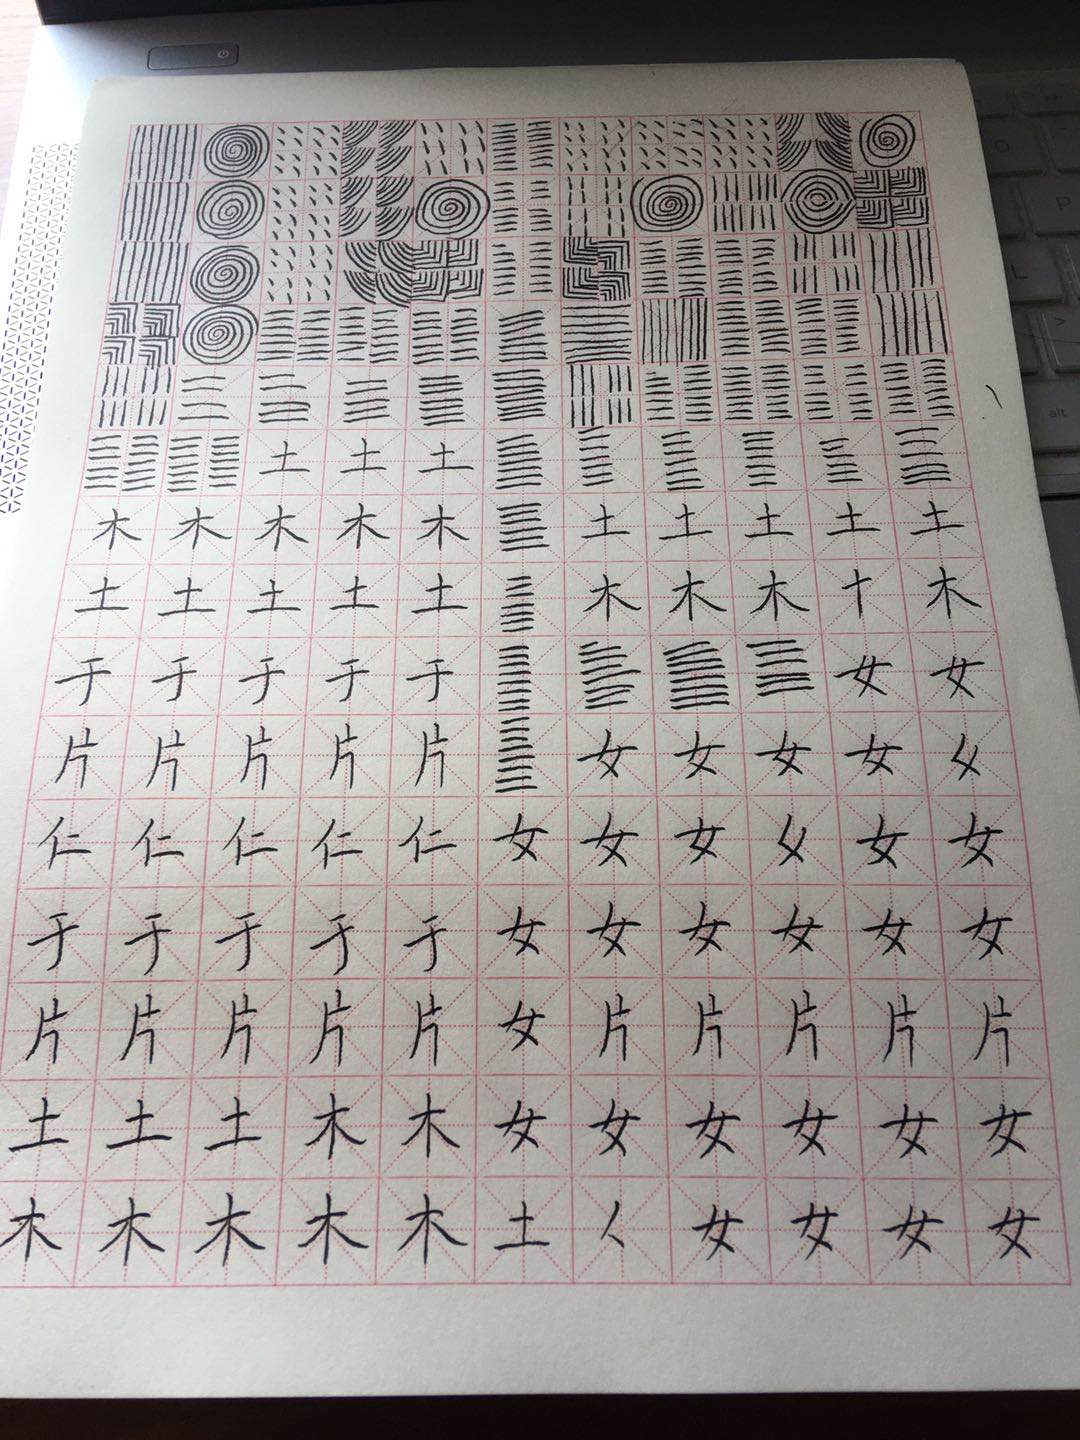 土 土 土
木 木 木 木 木 土 土 土 土 土
土 土 土 土 土 木 木 木 十 木
于 于 于 于 于 女 女
片 片 片 片 片 女 女 女 女
仁 仁 仁 仁 仁 女 女 女 女 女
于 于 于 于 于 女 女 女 女 女 女
片 片 片 片 片 女 片 片 片 片 片
土 土 土 木 木 女 女 女 女 女 女
木 木 木 木 木 土 女 女 女 女
O
P
L
alt